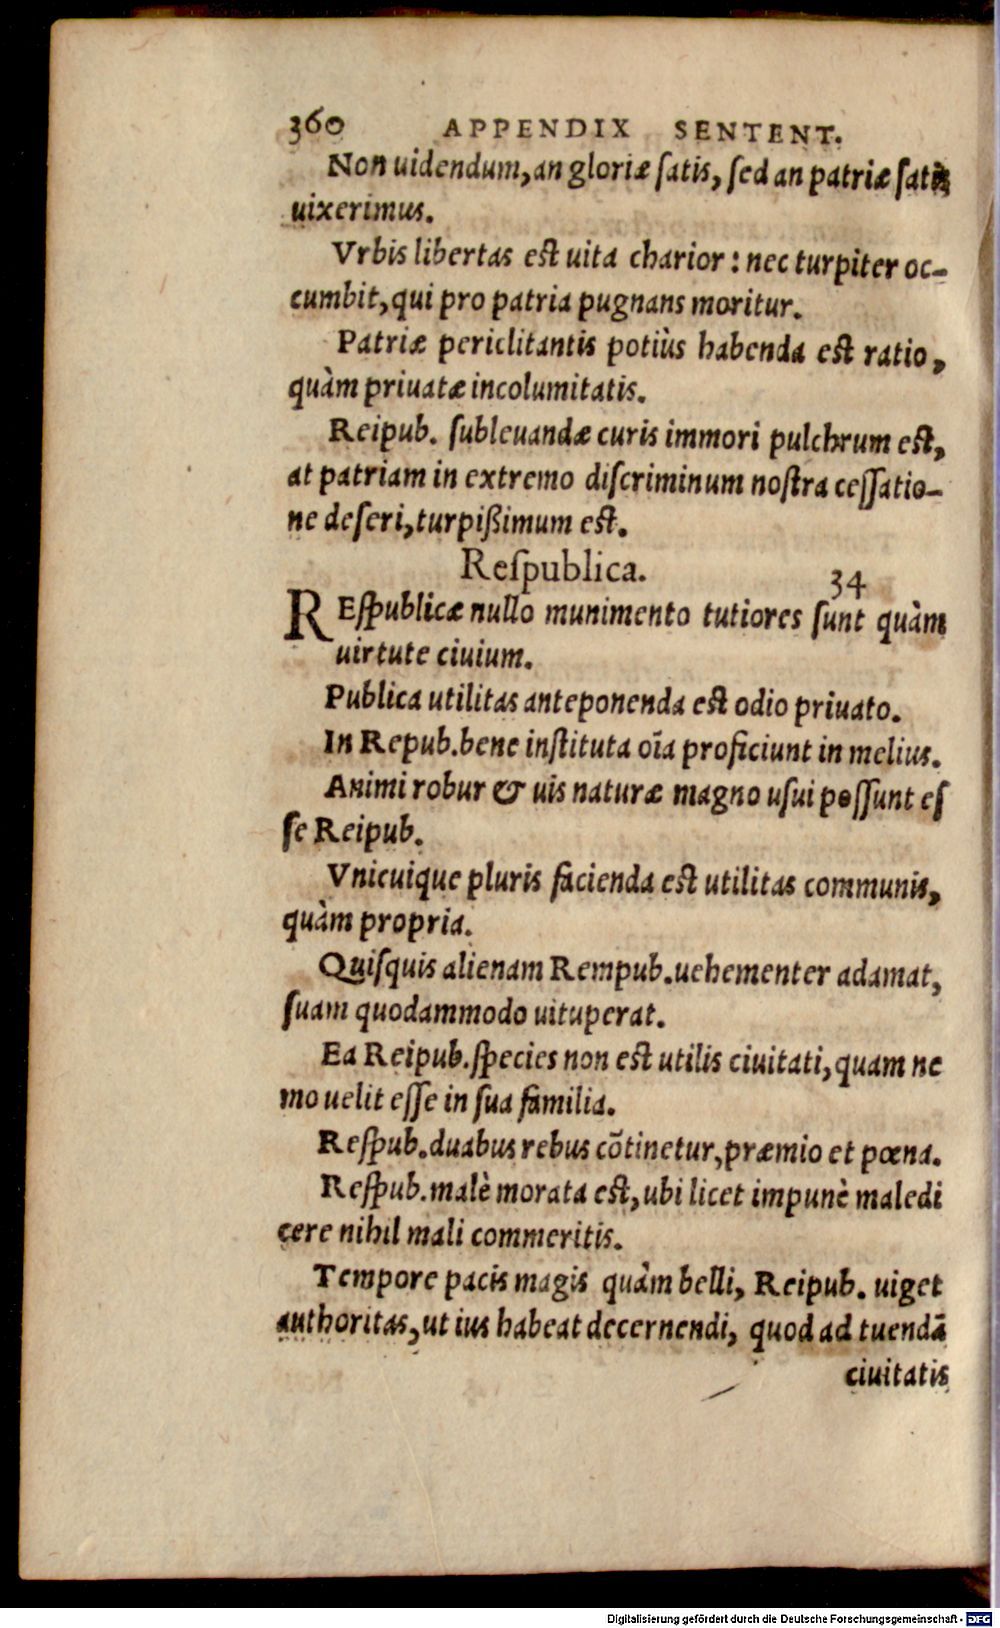 360 APPENDIX SENTENT.
Non uidendum, an gloriæ ſatis, ſed an patriæ ſatis
uixerimus.
Vrbis libertas est uita charior : nec turpiter oc-
cumbit, qui pro patria pugnans moritur.
Patriæ periclitantis potiùs habenda est ratio,
quàm priuatæ incolumitatis.
Reipub. ſubleuandæ curis immori pulchrum est,
at patriam in extremo diſcriminum nostra ceſſatio-
ne deſeri, turpißimum est.
Reſpublica. 34
REſpublicæ nullo munimento tutiores ſunt quàm
uirtute ciuium.
Publica utilitas anteponenda est odio priuato.
In Repub. bene inſtituta oĩa proficiunt in melius.
Animi robur & uis naturæ magno uſui poſſunt eſ
ſe Reipub.
Vnicuique pluris facienda est utilitas communis,
quàm propria.
Quiſquis alienam Rempub. uehementer adamat,
ſuam quodammodo uituperat.
Ea Reipub. ſpecies non est utilis ciuitati, quam ne
mo uelit eſſe in ſua familia.
Reſpub. duabus rebus cõtinetur, præmio et pœna.
Reſpub. malè morata est, ubi licet impunè maledi
cere nihil mali commeritis.
Tempore pacis magis quàm belli, Reipub. uiget
authoritas, ut ius habeat decernendi, quod ad tuendã
ciuitatis
Digitalisierung gefördert durch die Deutsche Forschungsgemeinschaft - DFG